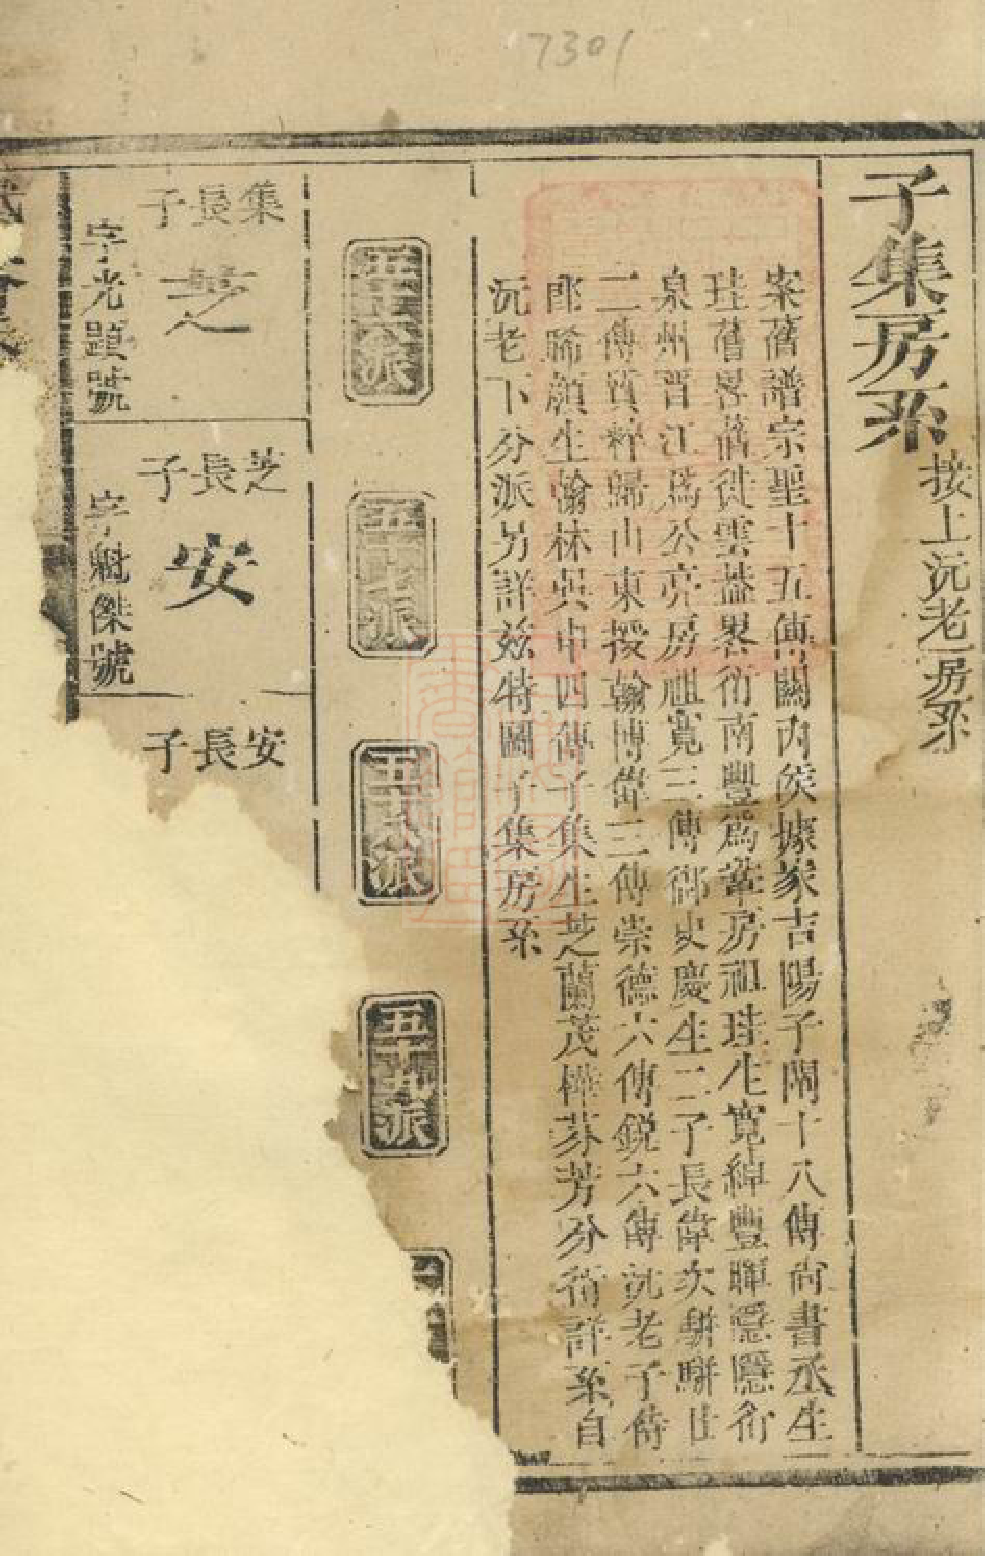 7301
子集房系
按上沅老房系
案舊譜宗聖十五傳關內侯據家吉陽子闡十八傳尚書丞生
珪舊畧舊徙雲蓋畧衍南豐爲鞏房祖珪生寬綽豐暉隱隱衍
泉州晋江爲公亮房祖寬三傳御史慶生二子長偉次駢駢廿
二傳質粹歸山東授翰博偉三傳崇德六傳銳六傳沅老子侍
郎晞顔生翰林吳中四傳子集生芝蘭茂樺芬芳分衍詳系自
沅老下分派另詳茲特圖子集房系
五十六派
五十七派
五十八派
五十九派
集長子
芝
字光顯號
芝長子
安
字魁傑號
安長子